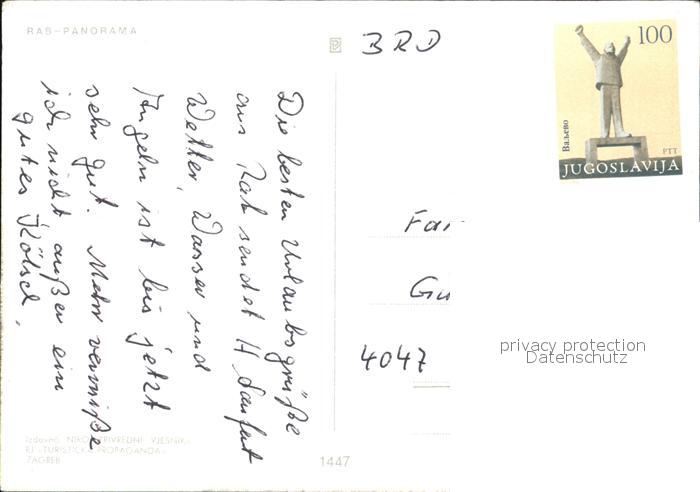 RAB-PANORAMA
BRD
100
Ваљево
PTT
JUGOSLAVIJA
Die besten Urlaubsgrüße
aus Rab sendet H.
Wetter, Wasser und
Angeln ist bis jetzt
sehr gut. Mehr vermiße
ich nicht außer ein
gutes Kölsch.
Fa
Gu
4047
privacy protection
Datenschutz
Izdavač: NIRO »PRIVREDNI VJESNIK«
RJ »TURISTIČKA PROPAGANDA«
ZAGREB
1447